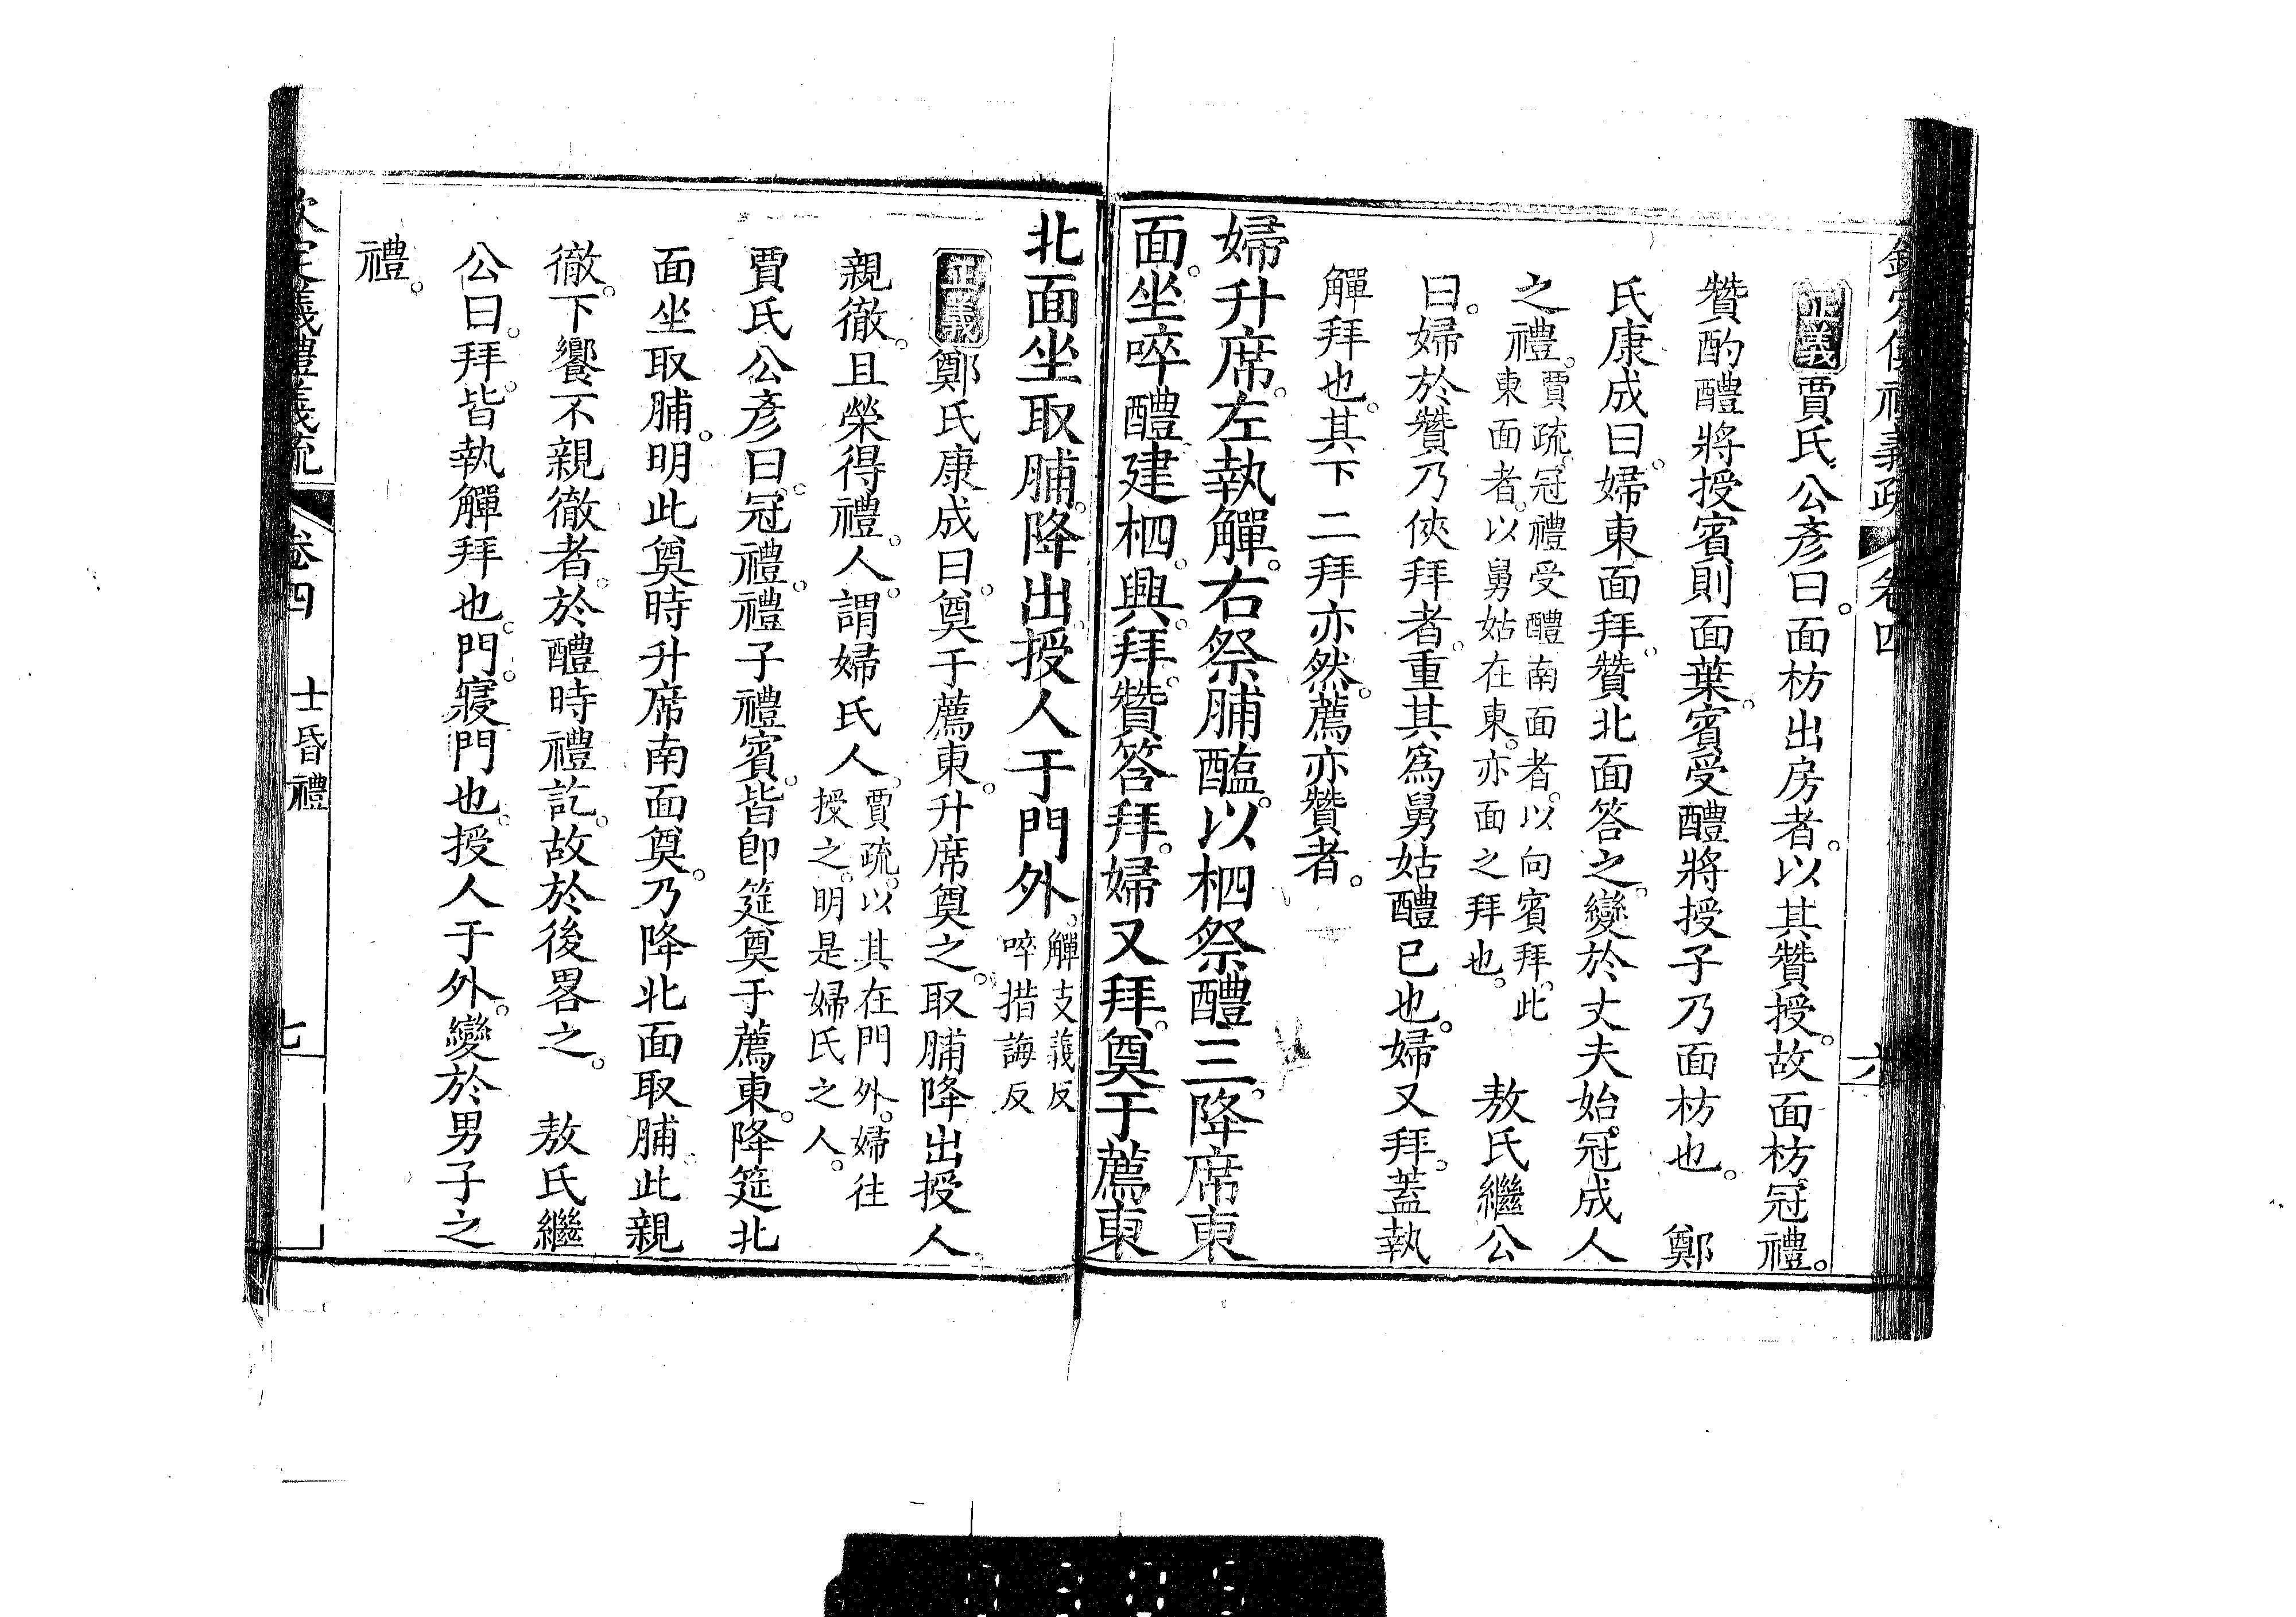 欽定儀禮義疏　卷四　六
正義賈氏公彥曰。面枋出房者。以其贊授。故面枋。冠禮。
贊酌醴將授賓則面葉。賓受醴將授子乃面枋也。　鄭
氏康成曰。婦東面拜。贊北面答之。變於丈夫始冠成人
之禮。賈疏。冠禮受醴南面者。以向賓拜。此東面者。以舅姑在東。亦面之拜也。　敖氏繼公
曰。婦於贊乃俠拜者。重其為舅姑醴已也。婦又拜。蓋執
觶拜也。其下二拜亦然。薦亦贊者。
婦升席。左執觶。右祭脯醢。以柶祭醴三。降席東
面。坐啐醴建柶。興。拜。贊答拜。婦又拜。奠于薦東
北面坐取脯。降出。授人于門外。觶支義反啐措誨反
正義鄭氏康成曰。奠于薦東。升席奠之。取脯降出授人。
親徹。且榮得禮。人。謂婦氏人。賈疏。以其在門外。婦往授之。明是婦氏之人。
賈氏公彥曰。冠禮。禮子禮賓。皆卽筵奠于薦東。降筵北
面坐取脯。明此奠時升席南面奠。乃降北面取脯。此親
徹。下饗不親徹者。於醴時禮訖。故於後畧之。　敖氏繼
公曰。拜。皆執觶拜也。門。寢門也。授人于外。變於男子之
禮。
欽定儀禮義疏　卷四　士昏禮　七